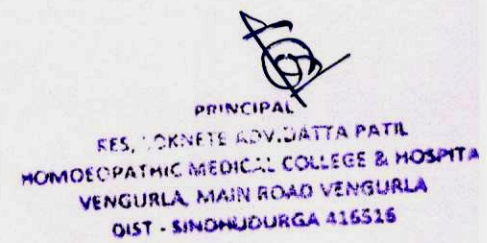 PRINCIPAL
RES, LOKNETE ADV.DATTA PATIL
HOMOEOPATHIC MEDICAL COLLEGE & HOSPITA
VENGURLA, MAIN ROAD VENGURLA
DIST - SINDHUDURGA 416516